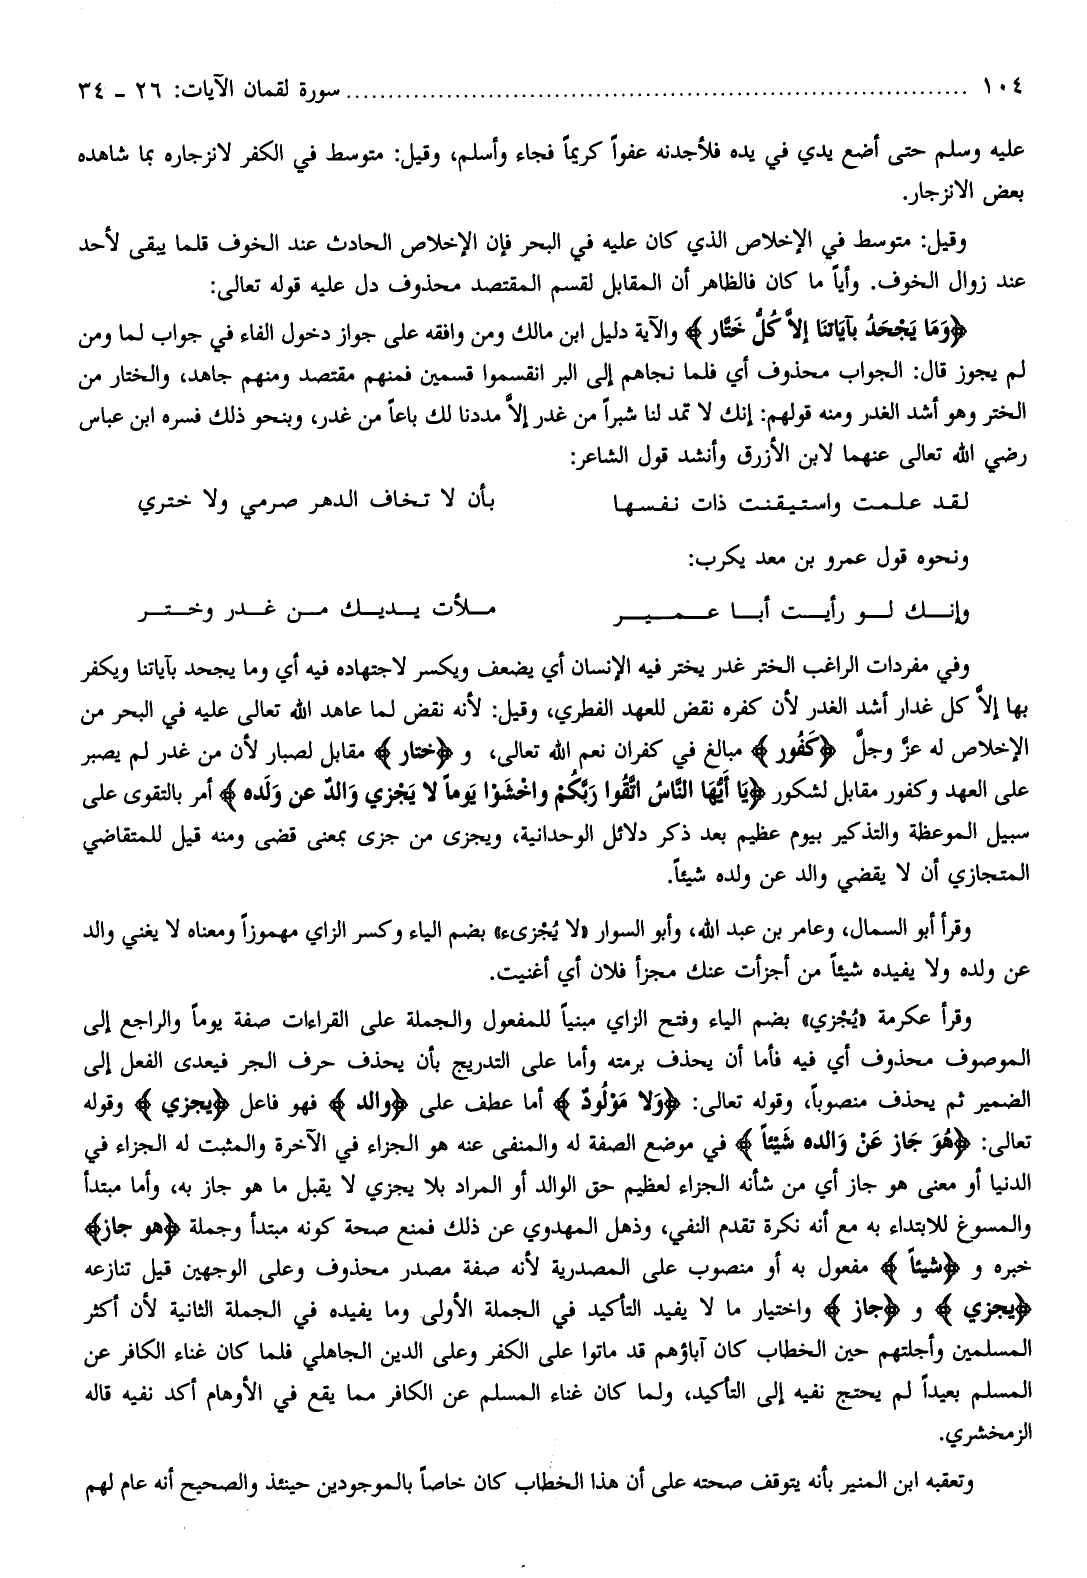 ١٠٤ ........................................................................ سورة لقمان الآيات: ٢٦ ـ ٣٤
عليه وسلم حتى أضع يدي في يده فلأجدنه عفواً كريماً فجاء وأسلم، وقيل: متوسط في الكفر لانزجاره بما شاهده
بعض الانزجار.
وقيل: متوسط في الإخلاص الذي كان عليه في البحر فإن الإخلاص الحادث عند الخوف قلما يبقى لأحد
عند زوال الخوف. وأياً ما كان فالظاهر أن المقابل لقسم المقتصد محذوف دل عليه قوله تعالى:
﴿وَمَا يَجْحَدُ بآيَاتنَا إلاَّ كُلُّ خَتَّار﴾ والآية دليل ابن مالك ومن وافقه على جواز دخول الفاء في جواب لما ومن
لم يجوز قال: الجواب محذوف أي فلما نجاهم إلى البر انقسموا قسمين فمنهم مقتصد ومنهم جاهد، والختار من
الختر وهو أشد الغدر ومنه قولهم: إنك لا تمد لنا شبراً من غدر إلاَّ مددنا لك باعاً من غدر، وبنحو ذلك فسره ابن عباس
رضي الله تعالى عنهما لابن الأزرق وأنشد قول الشاعر:
لقد علمت واستيقنت ذات نفسها بأن لا تخاف الدهر صرمي ولا ختري
ونحوه قول عمرو بن معد يكرب:
وإنك لو رأيت أبا عمير ملأت يديك من غدر وختر
وفي مفردات الراغب الختر غدر يختر فيه الإنسان أي يضعف ويكسر لاجتهاده فيه أي وما يجحد بآياتنا ويكفر
بها إلاَّ كل غدار أشد الغدر لأن كفره نقض للعهد الفطري، وقيل: لأنه نقض لما عاهد الله تعالى عليه في البحر من
الإخلاص له عزَّ وجلَّ ﴿كَفُور﴾ مبالغ في كفران نعم الله تعالى، و﴿ختار﴾ مقابل لصبار لأن من غدر لم يصبر
على العهد وكفور مقابل لشكور ﴿يَا أَيُّهَا النَّاسُ اتَّقُوا رَبَّكُمْ واخْشَوْا يَوماً لا يَجْزي وَالدٌ عن وَلَده﴾ أمر بالتقوى على
سبيل الموعظة والتذكير بيوم عظيم بعد ذكر دلائل الوحدانية، ويجزى من جزى بمعنى قضى ومنه قيل للمتقاضي
المتجازي أن لا يقضي والد عن ولده شيئاً.
وقرأ أبو السمال، وعامر بن عبد الله، وأبو السوار «لا يُجْزىء» بضم الياء وكسر الزاي مهموزاً ومعناه لا يغني والد
عن ولده ولا يفيده شيئاً من أجزأت عنك مجزأ فلان أي أغنيت.
وقرأ عكرمة «يُجْزي» بضم الياء وفتح الزاي مبنياً للمفعول والجملة على القراءات صفة يوماً والراجع إلى
الموصوف محذوف أي فيه فأما أن يحذف برمته وأما على التدريج بأن يحذف حرف الجر فيعدى الفعل إلى
الضمير ثم يحذف منصوباً، وقوله تعالى: ﴿وَلا مَوْلُودٌ﴾ أما عطف على ﴿والد﴾ فهو فاعل ﴿يجزي﴾ وقوله
تعالى: ﴿هُوَ جَاز عَنْ وَالده شَيْئاً﴾ في موضع الصفة له والمنفى عنه هو الجزاء في الآخرة والمثبت له الجزاء في
الدنيا أو معنى هو جاز أي من شأنه الجزاء لعظيم حق الوالد أو المراد بلا يجزي لا يقبل ما هو جاز به، وأما مبتدأ
والمسوغ للابتداء به مع أنه نكرة تقدم النفي، وذهل المهدوي عن ذلك فمنع صحة كونه مبتدأ وجملة ﴿هو جاز﴾
خبره و﴿شيئاً﴾ مفعول به أو منصوب على المصدرية لأنه صفة مصدر محذوف وعلى الوجهين قيل تنازعه
﴿يجزي﴾ و﴿جاز﴾ واختيار ما لا يفيد التأكيد في الجملة الأولى وما يفيده في الجملة الثانية لأن أكثر
المسلمين وأجلتهم حين الخطاب كان آباؤهم قد ماتوا على الكفر وعلى الدين الجاهلي فلما كان غناء الكافر عن
المسلم بعيداً لم يحتج نفيه إلى التأكيد، ولما كان غناء المسلم عن الكافر مما يقع في الأوهام أكد نفيه قاله
الزمخشري.
وتعقبه ابن المنير بأنه يتوقف صحته على أن هذا الخطاب كان خاصاً بالموجودين حينئذ والصحيح أنه عام لهم